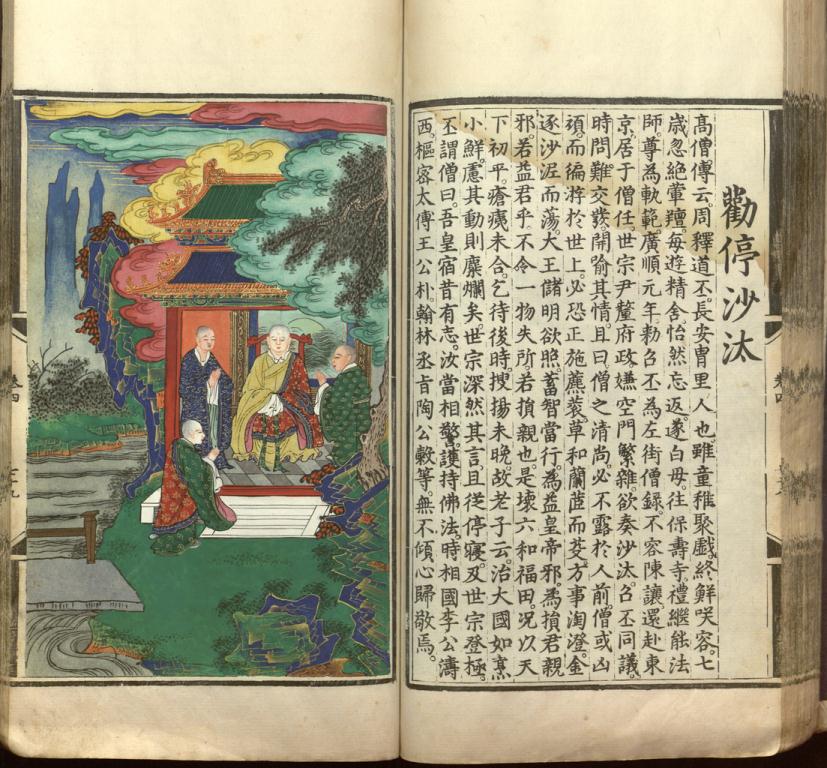 勸停沙汰
高僧傳云。周釋道丕。長安胄里人也。雖童稚聚戲。終鮮咲容。七
歲忽絕葷羶。每遊精舍。怡然忘返。遂白母。往保壽寺。禮繼能法
師。尊為軌範。廣順元年。勑召丕為左街僧錄。不容陳讓。還赴東
京。居于僧任。世宗尹釐府政。嫌空門繁雜。欲奏沙汰。召丕同議。
時問難交發。開喻其情。且曰。僧之清尚。必不露於人前。僧或凶
頑。而徧游於世上。必恐正施薦蓑草和蘭茝而芟。方事淘澄。金
逐沙泥而蕩。大王儲明欲照。蓄智當行。為益皇帝邪。為損君親
邪。若益君乎。不令一物失所。若損親也。是壞六和福田。況以天
下初平。瘡痍未合。乞待後時。搜揚未晚。故老子云。治大國如烹
小鮮。慮其動則糜爛矣。世宗深然其言。且從停寢。及世宗登極。
丕謂僧曰。吾皇宿昔有志。汝當相警。護持佛法。時相國李公濤
西樞密太傅王公朴。翰林丞旨陶公穀等。無不傾心歸敬焉。
卷四